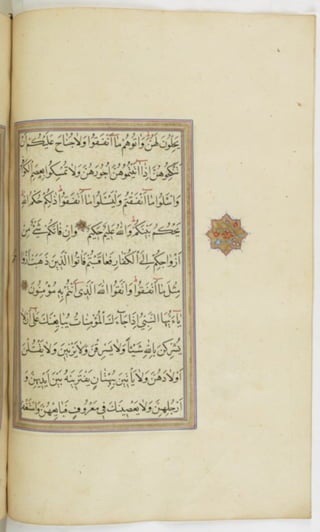 يَحِلُّونَ لَهُنَّ وَآتُوهُمْ مَا أَنْفَقُوا وَلَا جُنَاحَ عَلَيْكُمْ أَنْ
تَنْكِحُوهُنَّ إِذَا آتَيْتُمُوهُنَّ أُجُورَهُنَّ وَلَا تُمْسِكُوا بِعِصَمِ الْكَوَافِرِ
وَاسْئَلُوا مَا أَنْفَقْتُمْ وَلْيَسْئَلُوا مَا أَنْفَقُوا ذَلِكُمْ حُكْمُ اللَّهِ
يَحْكُمُ بَيْنَكُمْ وَاللَّهُ عَلِيمٌ حَكِيمٌ وَإِنْ فَاتَكُمْ شَيْءٌ مِنْ
أَزْوَاجِكُمْ إِلَى الْكُفَّارِ فَعَاقَبْتُمْ فَآتُوا الَّذِينَ ذَهَبَتْ أَزْوَاجُهُمْ
مِثْلَ مَا أَنْفَقُوا وَاتَّقُوا اللَّهَ الَّذِي أَنْتُمْ بِهِ مُؤْمِنُونَ
يَا أَيُّهَا النَّبِيُّ إِذَا جَاءَكَ الْمُؤْمِنَاتُ يُبَايِعْنَكَ عَلَى أَنْ لَا
يُشْرِكْنَ بِاللَّهِ شَيْئًا وَلَا يَسْرِقْنَ وَلَا يَزْنِينَ وَلَا يَقْتُلْنَ
أَوْلَادَهُنَّ وَلَا يَأْتِينَ بِبُهْتَانٍ يَفْتَرِينَهُ بَيْنَ أَيْدِيهِنَّ وَ
أَرْجُلِهِنَّ وَلَا يَعْصِينَكَ فِي مَعْرُوفٍ فَبَايِعْهُنَّ وَاسْتَغْفِرْ